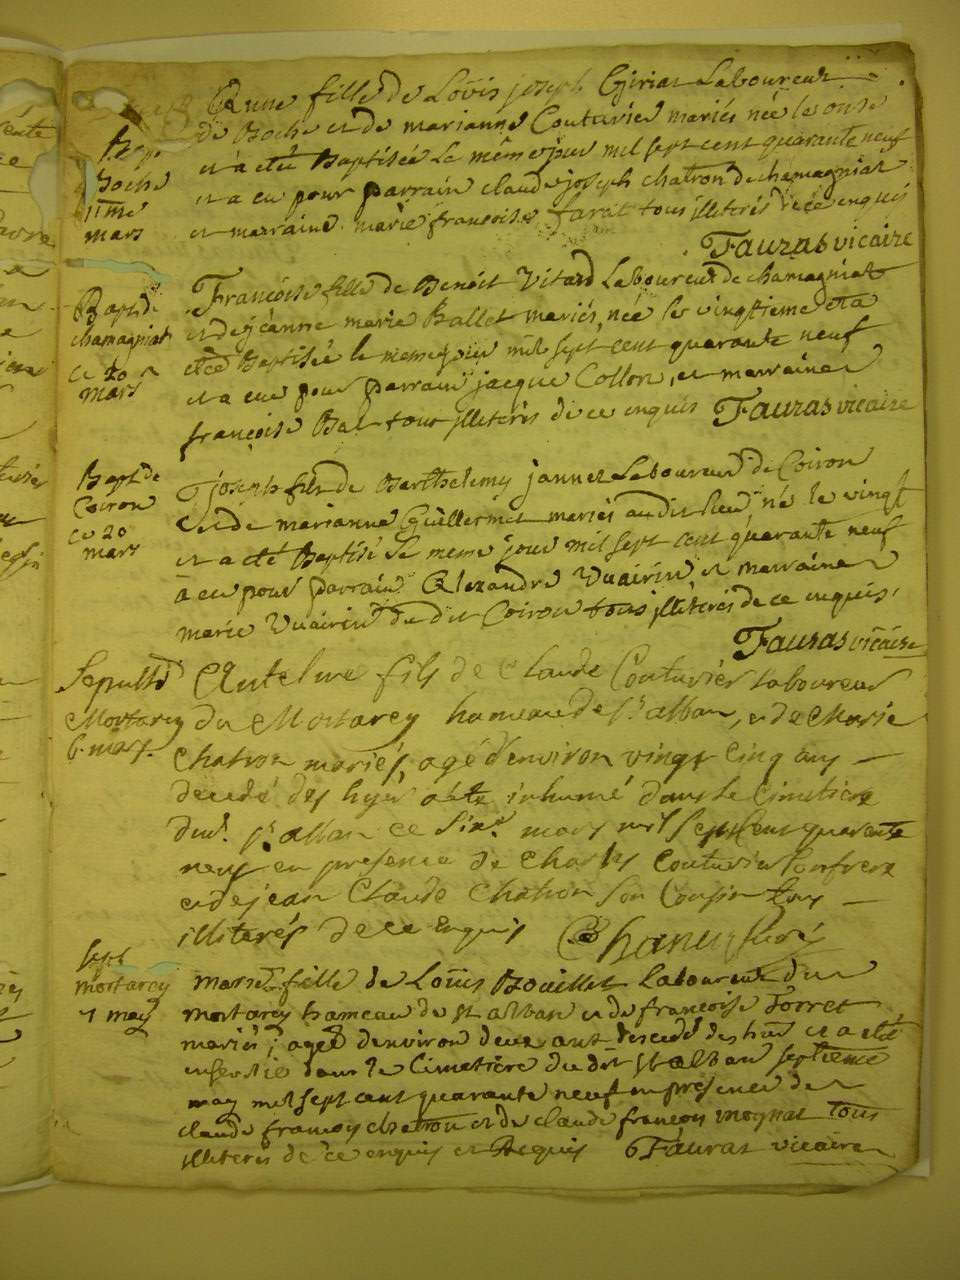 Bap.
Boche
11me
mars
Anne fille de Loüis joseph Giriat Laboureur
de Boche et de marianne Couturier mariés née le onse
et a eté Baptisée le même jour mil sept cent quarante neuf
et a eu pour parrain claude joseph chatron de chamagniat
et marraine marie françoise farat tous illiterés de ce enquis
Fauras vicaire
Bapt de
chamagniat
ce 20
mars
Françoise fille de Benoit Vitard Laboureur de chamagniat
et de jeanne marie Ballet mariés, née le vingtieme et a
eté Baptisée le meme jour mil sept cent quarante neuf
et a eue pour parrain jacque Collon, et marraine
françoise Bal tous illiterés de ce enquis Fauras vicaire
Bapt de
Coiron
ce 20
mars
joseph fils de Barthelemy jannet Laboureur de Coiron
et de marianne Guillermet mariés audit lieu né le vingt
et a eté Baptisé le meme jour mil sept cent quarante neuf
a eu pour parrain Alexandre Vuairin, et marraine
marie Vuairin du dit Coiron tous illiterés de ce enquis,
Fauras vicaire
Sepult
Mortarey
6. mars.
Antelme fils de Claude Couturier laboureur
du Mortarey hameau de St alban, et de Marie
Chatron mariés, agé d'environ vingt cinq ans
decedé des hyer a été inhumé dans le Cimetiere
dud. St alban ce sixe. mars mil sept cent quarante
neuf en presence de Charles Couturier son frere
et de jean Claude Chatron son Cousin tous
illiterés de ce enquis Chanu Curé
sept
mortarey
7 may
marie fille de Loüis Boüillet Laboureur du
mortarey hameau de St alban et de françoise Forret
mariés; agée d'environ deux ans descedé des hier et a eté
ensevelie dans le Cimetière du dit St alban septième
may mil sept cent quarante neuf en presence de
claude françois chatron et de claude françois moynat tous
illiterés de ce enquis et Requis Fauras vicaire